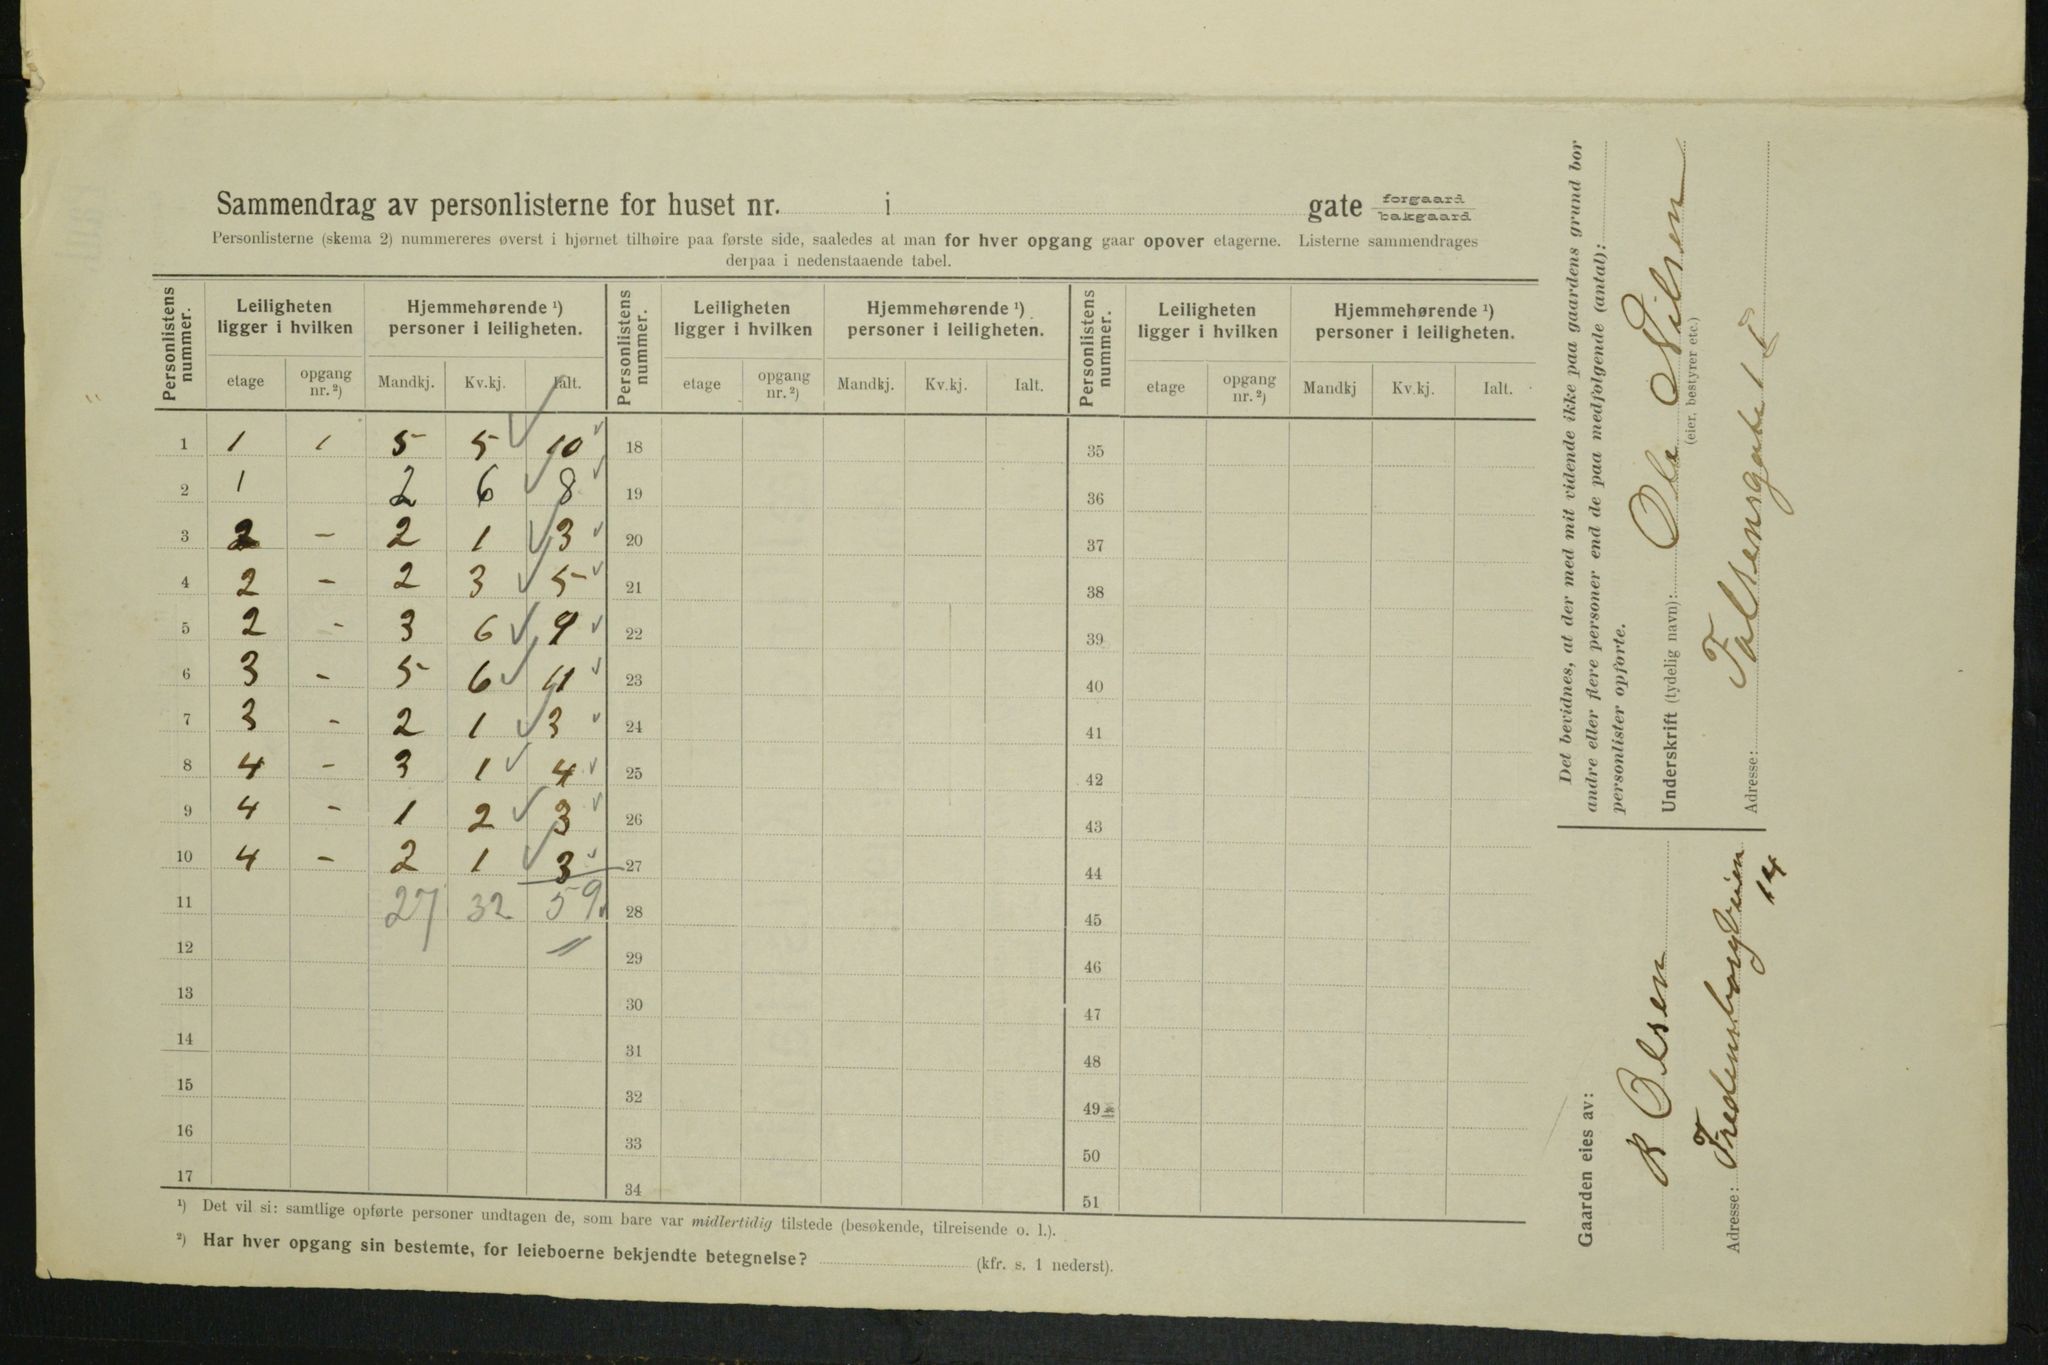 Sammendrag av personlisterne for huset nr. i gate forgaard
bakgaard
Personlisterne (skema 2) nummereres øverst i hjørnet tilhøire paa første side, saaledes at man for hver opgang gaar opover etagerne. Listerne sammendrages
derpaa i nedenstaaende tabel.
Personlistens nummer. Leiligheten ligger i hvilken Hjemmehørende ¹) personer i leiligheten. Personlistens nummer. Leiligheten ligger i hvilken Hjemmehørende ¹) personer i leiligheten. Personlistens nummer. Leiligheten ligger i hvilken Hjemmehørende ¹) personer i leiligheten.
etage opgang nr. ²) Mandkj. Kv.kj. Ialt. etage opgang nr. ²) Mandkj. Kv.kj. Ialt. etage opgang nr. ²) Mandkj Kv.kj. Ialt.
1 1 1 5 5 10 18 35
2 1 2 6 8 19 36
3 2 - 2 1 3 20 37
4 2 - 2 3 5 21 38
5 2 - 3 6 9 22 39
6 3 - 5 6 11 23 40
7 3 - 2 1 3 24 41
8 4 - 3 1 4 25 42
9 4 - 1 2 3 26 43
10 4 - 2 1 3 27 44
11 27 32 59 28 45
12 29 46
13 30 47
14 31 48
15 32 49
16 33 50
17 34 51
¹) Det vil si: samtlige opførte personer undtagen de, som bare var midlertidig tilstede (besøkende, tilreisende o. l.).
²) Har hver opgang sin bestemte, for leieboerne bekjendte betegnelse? (kfr. s. 1 nederst).
Det bevidnes, at der med mit vidende ikke paa gaardens grund bor
andre eller flere personer end de paa medfølgende (antal):
personlister opførte.
Underskrift (tydelig navn): Ole Nilsen
(eier, bestyrer etc.)
Adresse: Falsensgate 1
Gaarden eies av:
B Olsen
Adresse: Fredensborgveien
14